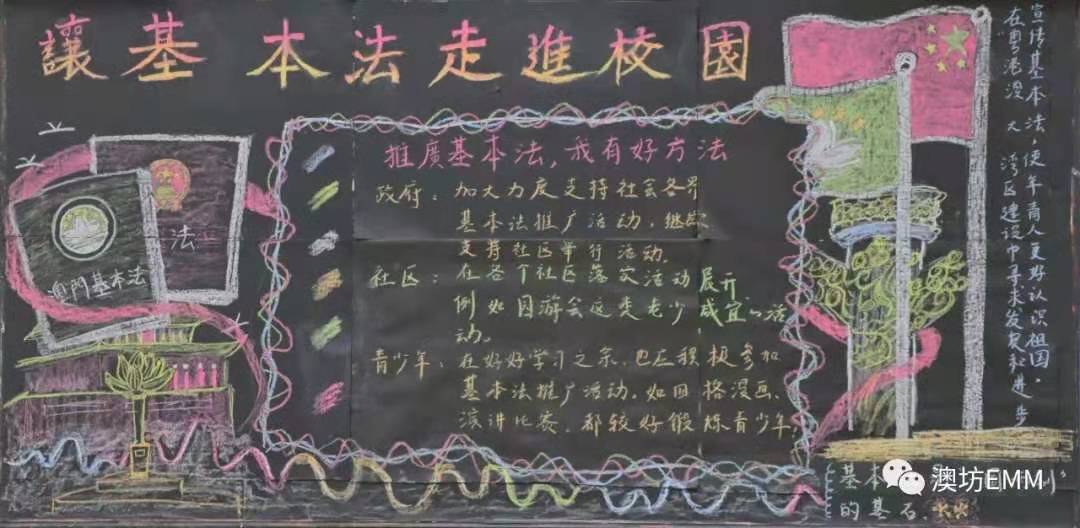 讓基本法走進校園
宣传基本法,使年青人更好认识祖国。
在粤港澳大湾区建设中寻求发展和进步
推廣基本法,我有好方法
政府:加大力度支持社会各界
基本法推广活动,继续
支持社区举行活动。
社区:在各个社区落实活动展开
例如园游会这类老少咸宜的活
动。
青少年:在好好学习之余,也应积极参加
基本法推广活动,如四格漫画、
演讲比赛,都较好锻炼青少年。
法
澳門基本法
基本
的基石
澳坊EMM